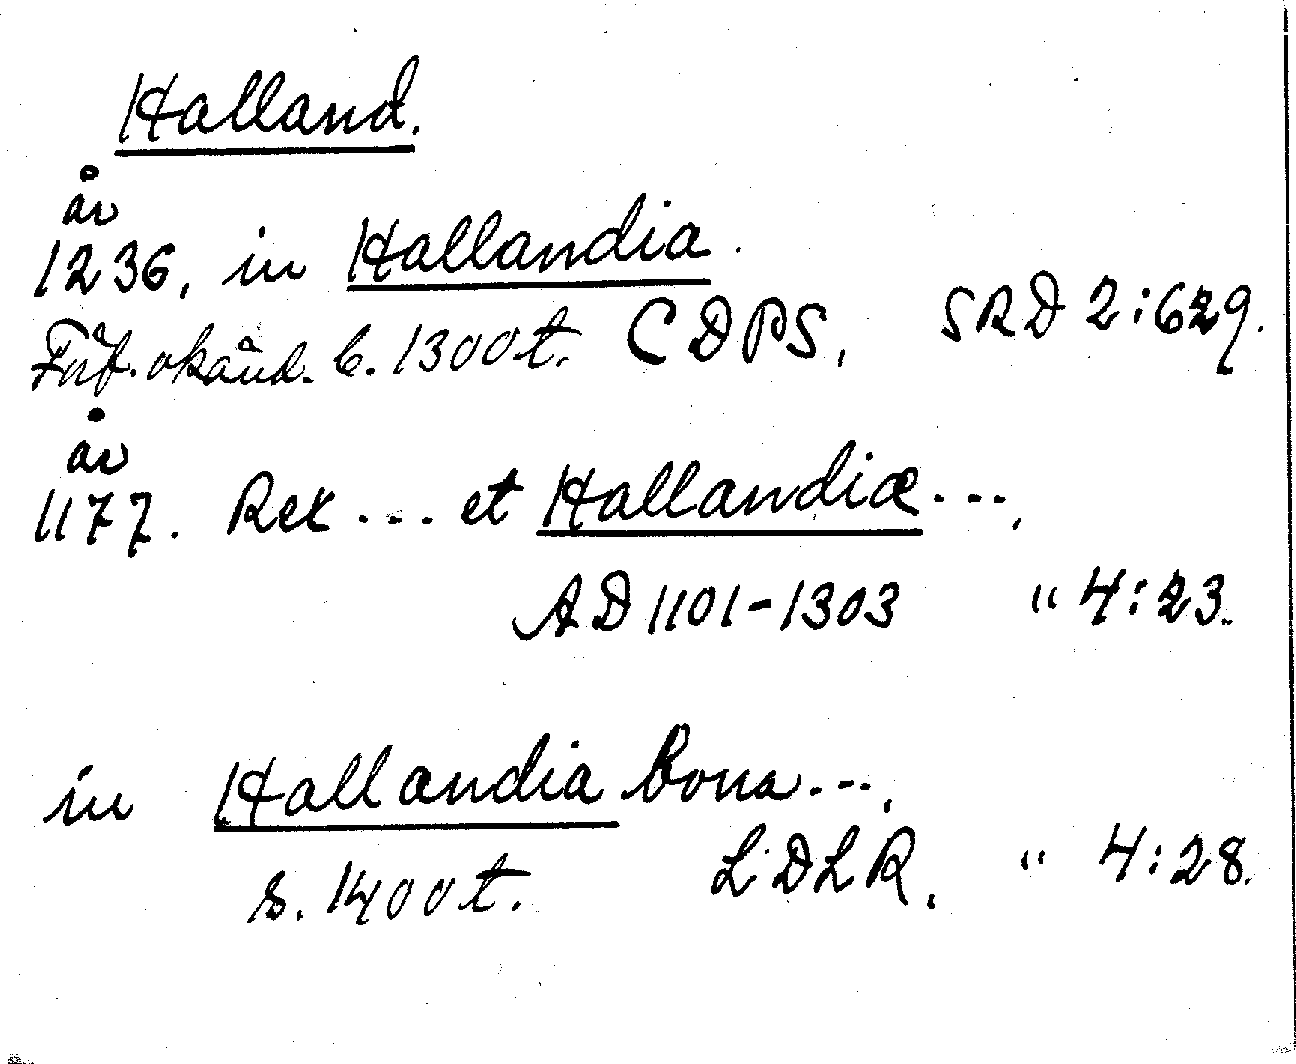 Halland.
år
1236, in Hallandia.
Förf. okänd. b. 1300t. CDPS, SRD 2:629.
år
1177. Rex ... et Hallandiæ ...,
AD 1101-1303 " 4:23.
in Hallandia bona ...,
s. 1400t. LDLR, " 4:28.